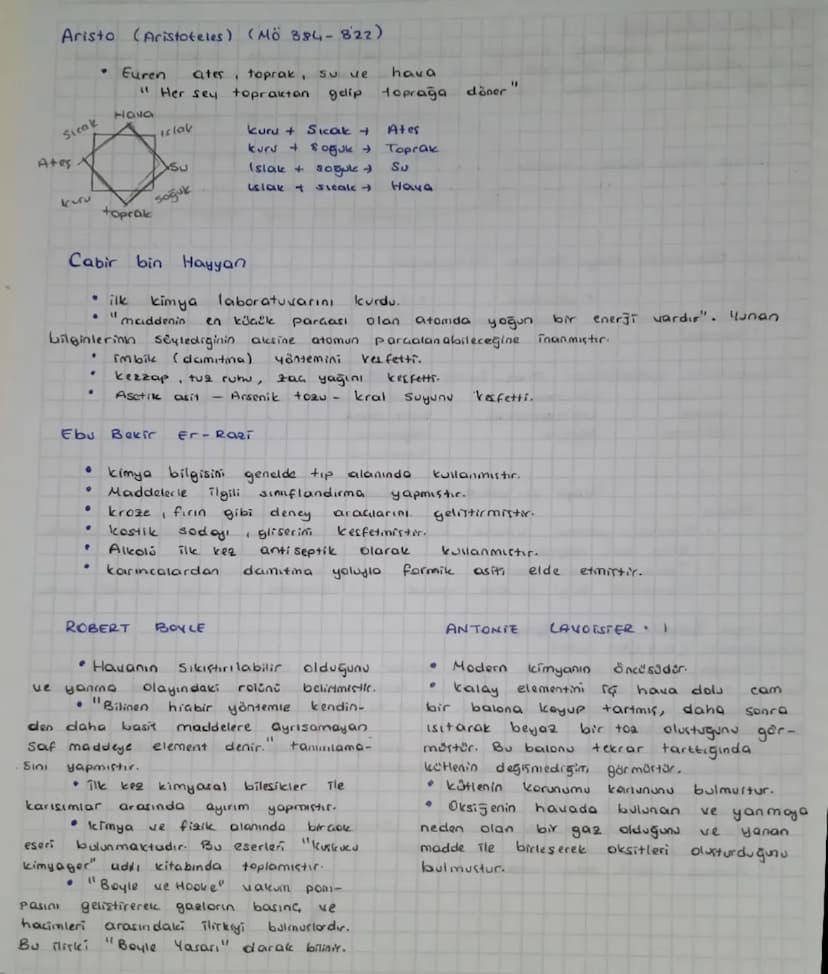 Aristo (Aristoteles) (Mö 384-322)
• Evren ateş, toprak, su ve hava
"Her şey topraktan gelip toprağa döner"
Hava
Sıcak
ıslak
Ateş
Su
kuru
soğuk
toprak
kuru + Sıcak → Ateş
kuru + soğuk → Toprak
Islak + soğuk → Su
ıslak + sıcak → Hava
Cabir bin Hayyan
• ilk kimya laboratuvarını kurdu.
• "maddenin en küçük parçası olan atomda yoğun bir enerji vardır". Yunan
bilginlerinin söylediğinin aksine atomun parçalanabileceğine inanmıştır.
• imbik (damıtma) yöntemini keşfetti.
• kezzap, tuz ruhu, zaç yağını keşfetti.
• Asetik asit - Arsenik tozu - kral suyunu keşfetti.
Ebu Bekir Er-Razi
• kimya bilgisini genelde tıp alanında kullanmıştır.
• Maddelerle ilgili sınıflandırma yapmıştır.
• kroze, fırın gibi deney araçlarını geliştirmiştir.
• kostik sodayı, gliserini keşfetmiştir.
• Alkolü ilk kez antiseptik olarak kullanmıştır.
• karıncalardan damıtma yoluyla formik asiti elde etmiştir.
ROBERT BOYLE
• Havanın sıkıştırılabilir olduğunu
ve yanma olayındaki rolünü belirtmiştir.
• "Bilinen hiçbir yöntemle kendin-
den daha basit maddelere ayrışamayan
saf maddeye element denir." tanımlama-
sını yapmıştır.
• ilk kez kimyasal bileşikler ile
karışımlar arasında ayırım yapmıştır.
• kimya ve fizik alanında birçok
eseri bulunmaktadır. Bu eserleri "kuşkucu
kimyager" adlı kitabında toplamıştır.
• "Boyle ve Hooke" vakum pom-
pasını geliştirerek gazların basınç ve
hacimleri arasındaki ilişkiyi bulmuşlardır.
Bu ilişki "Boyle Yasası" olarak bilinir.
ANTONIE LAVOISIER • 1
• Modern kimyanın öncüsüdür.
• kalay elementini içi hava dolu cam
bir balona koyup tartmış, daha sonra
ısıtarak beyaz bir toz oluştuğunu gör-
müştür. Bu balonu tekrar tarttığında
kütlenin değişmediğini görmüştür.
• kütlenin korunumu kanununu bulmuştur.
• Oksijenin havada bulunan ve yanmaya
neden olan bir gaz olduğunu ve yanan
madde ile birleşerek oksitleri oluşturduğunu
bulmuştur.